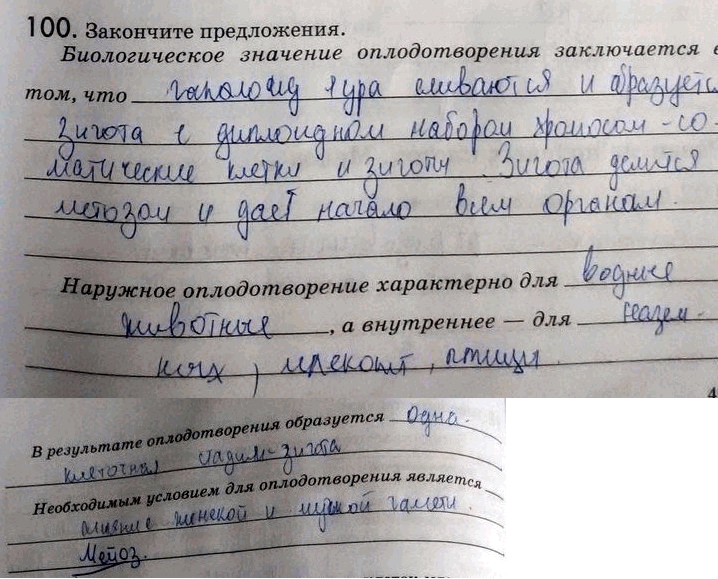 100. Закончите предложения.
Биологическое значение оплодотворения заключается в
том, что гаплоид ядра сливаются и образуется
зигота с диплоидном набором хромосом - со-
матические клетки и зиготы. Зигота делится
метозом и дает начало всем органам.
Наружное оплодотворение характерно для водные
животные, а внутреннее — для назем-
ных, млекопит, птицы.
4
В результате оплодотворения образуется одна-
клеточная стадия-зигота
Необходимым условием для оплодотворения является
слияние женской и мужской гаметы.
Мейоз.